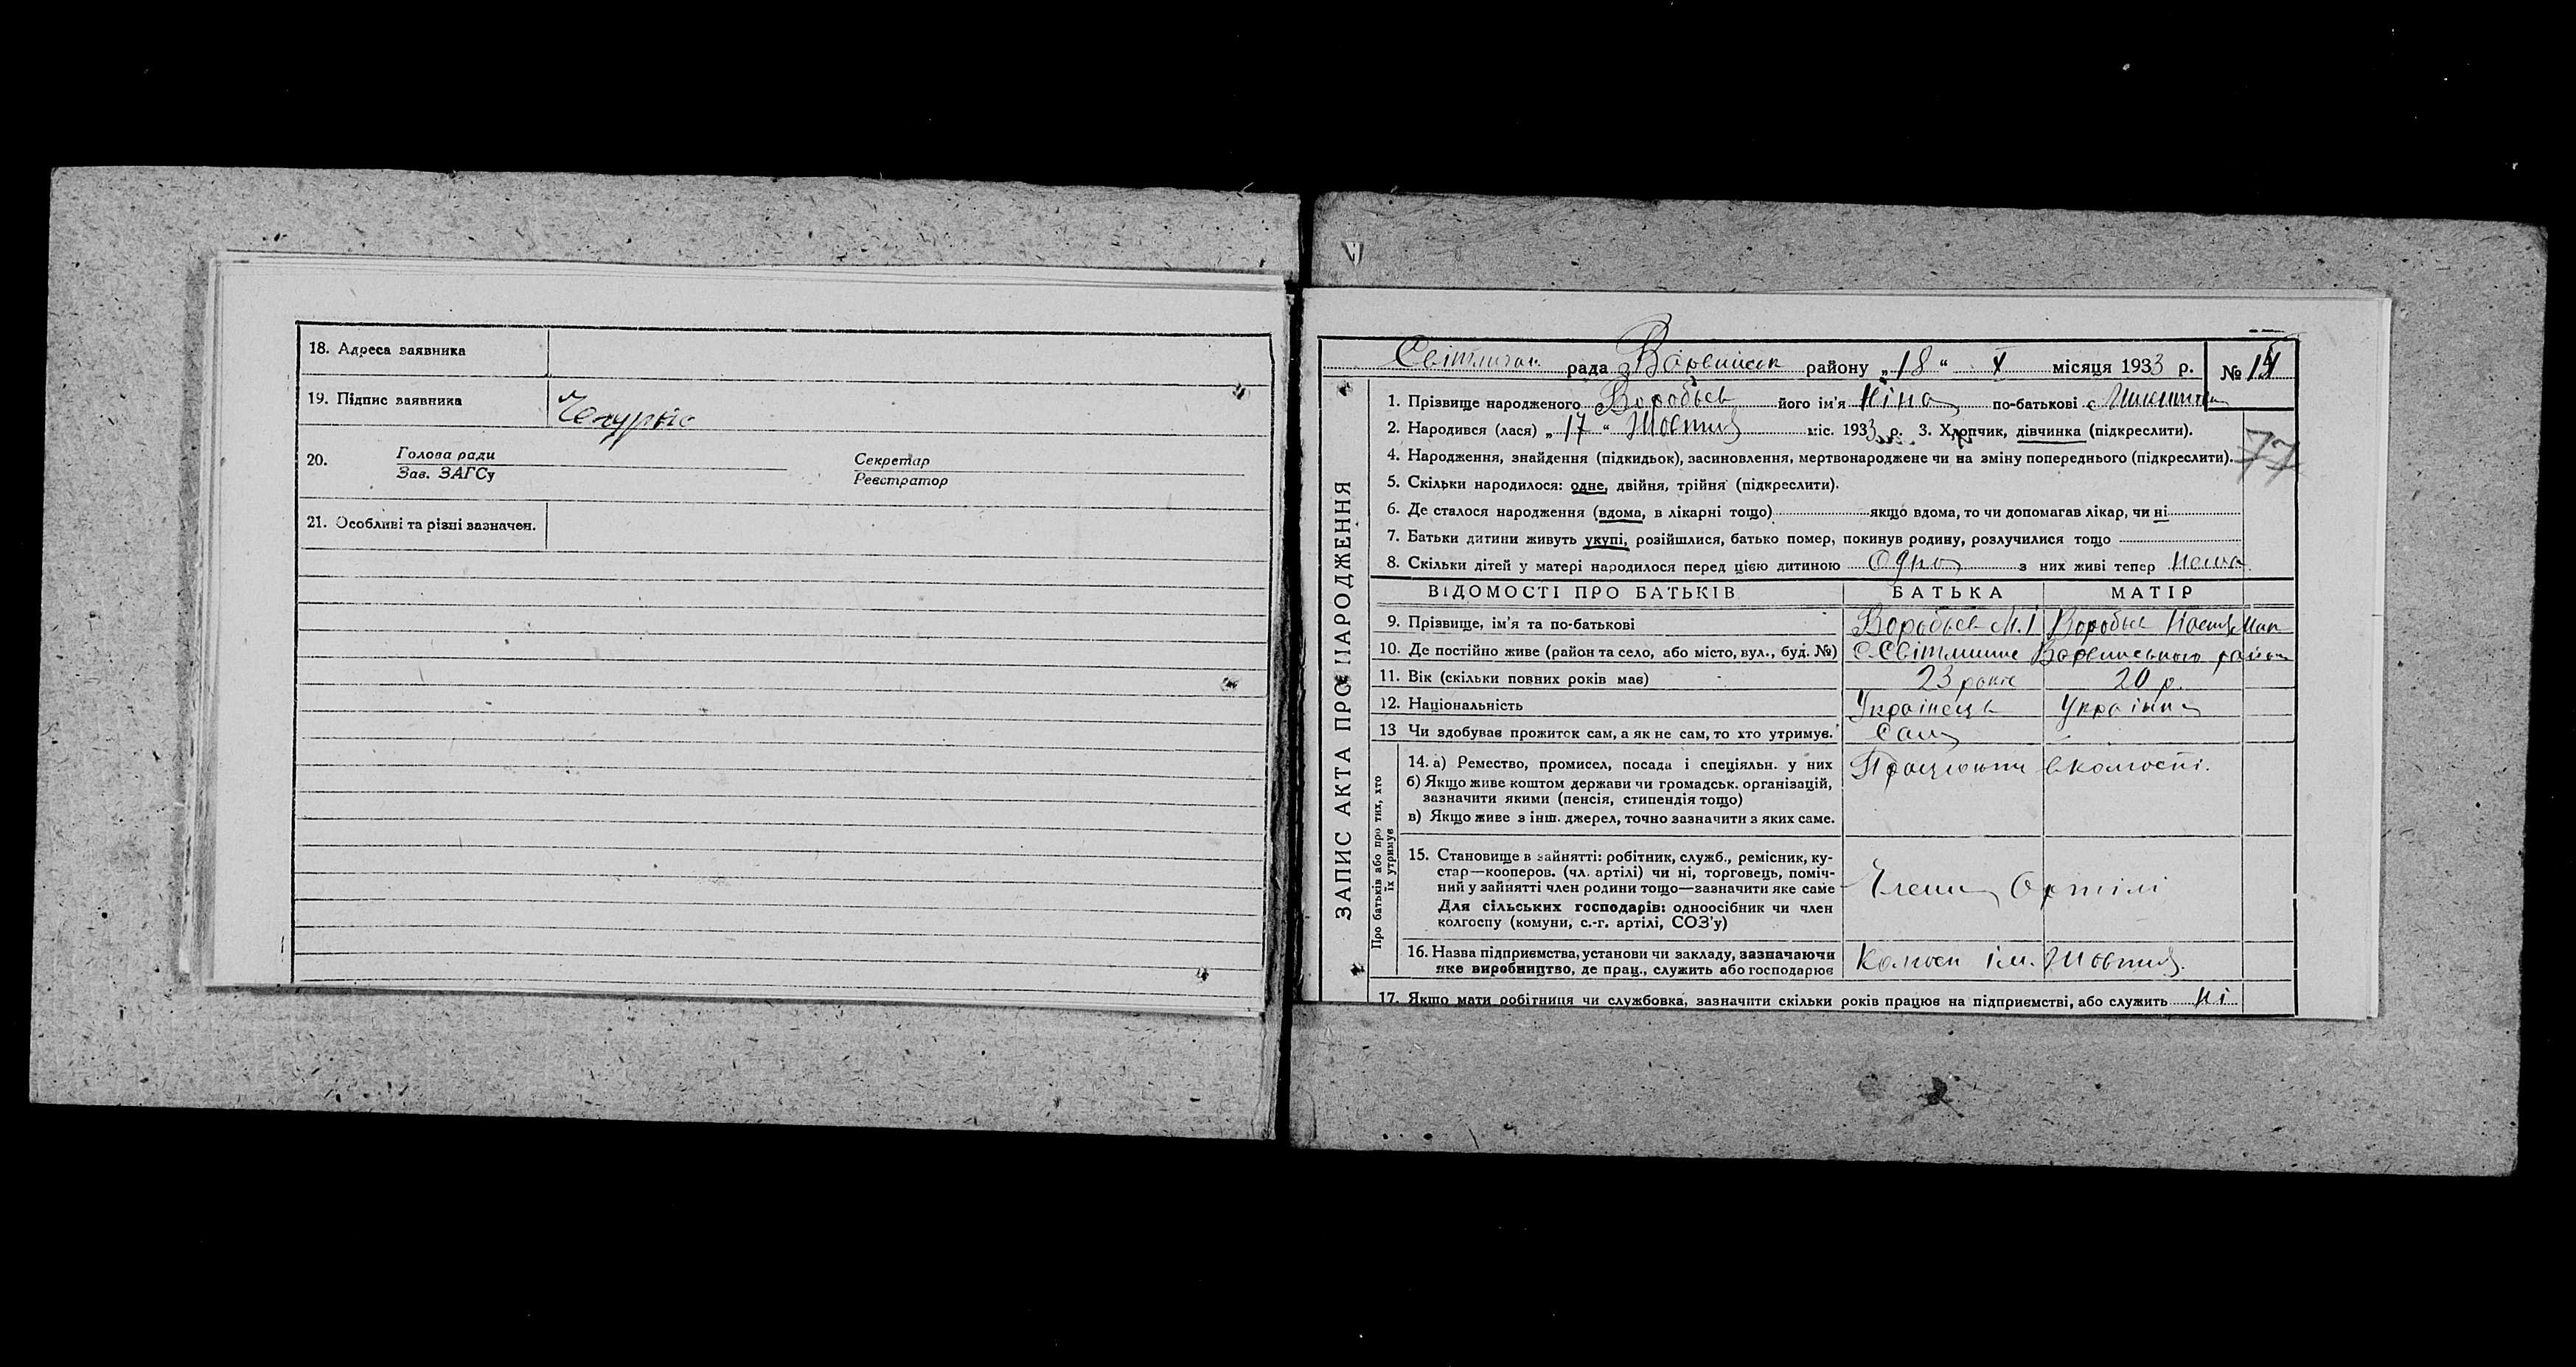 18. Адреса заявника
19. Підпис заявника
20. Голова ради Секретар
Зав. ЗАГСу Реєстратор
21. Особливі та різні зазначен.
ЗАПИС АКТА ПРО НАРОДЖЕННЯ
Світличан рада Варвинськ району „18“ X місяця 1933 р. №
1. Прізвище народженого Воробьев його ім'я Ніна по-батькові
2. Народився (лася) „17“ Жовтня міс. 1933 р. 3. Хлопчик, дівчинка (підкреслити).
77
4. Народження, знайдення (підкидьок), засиновлення, мертвонароджене чи на зміну попереднього (підкреслити).
5. Скільки народилося: одне, двійня, трійня (підкреслити).
6. Де сталося народження (вдома, в лікарні тощо) якщо вдома, то чи допомагав лікар, чи ні
7. Батьки дитини живуть укупі, розійшлися, батько помер, покинув родину, розлучилися тощо
8. Скільки дітей у матері народилося перед цією дитиною Одно з них живі тепер нема
ВІДОМОСТІ ПРО БАТЬКІВ БАТЬКА МАТІР
9. Прізвище, ім'я та по-батькові Воробьев М. І Воробьев
10. Де постійно живе (район та село, або місто, вул., буд. №) С. Світличне Варвинського району
11. Вік (скільки повних років має) 23 років 20 р.
12. Національність Українець Українка
13 Чи здобуває прожиток сам, а як не сам, то хто утримує. Сам
Про батьків або про тих, хто їх утримує
14. а) Ремество, промисел, посада і спеціяльн. у них Працюють в колгоспі.
б) Якщо живе коштом держави чи громадськ. організацій,
зазначити якими (пенсія, стипендія тощо)
в) Якщо живе з інш. джерел, точно зазначити з яких саме.
15. Становище в зайнятті: робітник, служб., ремісник, ку-
стар—кооперов. (чл. артілі) чи ні, торговець, поміч-
ний у зайнятті член родини тощо—зазначити яке саме Члени Артілі
Для сільських господарів: одноосібник чи член
колгоспу (комуни, с.-г. артілі, СОЗ'у)
16. Назва підприємства, установи чи закладу, зазначаючи
яке виробництво, де прац., служить або господарює Колгосп ім. Жовтня.
17. Якщо мати робітниця чи службовка, зазначити скільки років працює на підприємстві, або служить Ні